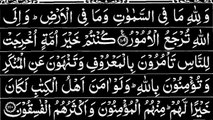 وَلِلّٰهِ مَا فِى السَّمٰوٰتِ وَمَا فِى الْاَرْضِ ؕ وَاِلَى
اللّٰهِ تُرْجَعُ الْاُمُوْرُ ۝۱۰۹ كُنْتُمْ خَيْرَ اُمَّةٍ اُخْرِجَتْ
لِلنَّاسِ تَاْمُرُوْنَ بِالْمَعْرُوْفِ وَتَنْهَوْنَ عَنِ الْمُنْكَرِ
وَتُؤْمِنُوْنَ بِاللّٰهِ ؕ وَلَوْ اٰمَنَ اَهْلُ الْكِتٰبِ لَكَانَ
خَيْرًا لَّهُمْ ؕ مِنْهُمُ الْمُؤْمِنُوْنَ وَاَكْثَرُهُمُ الْفٰسِقُوْنَ